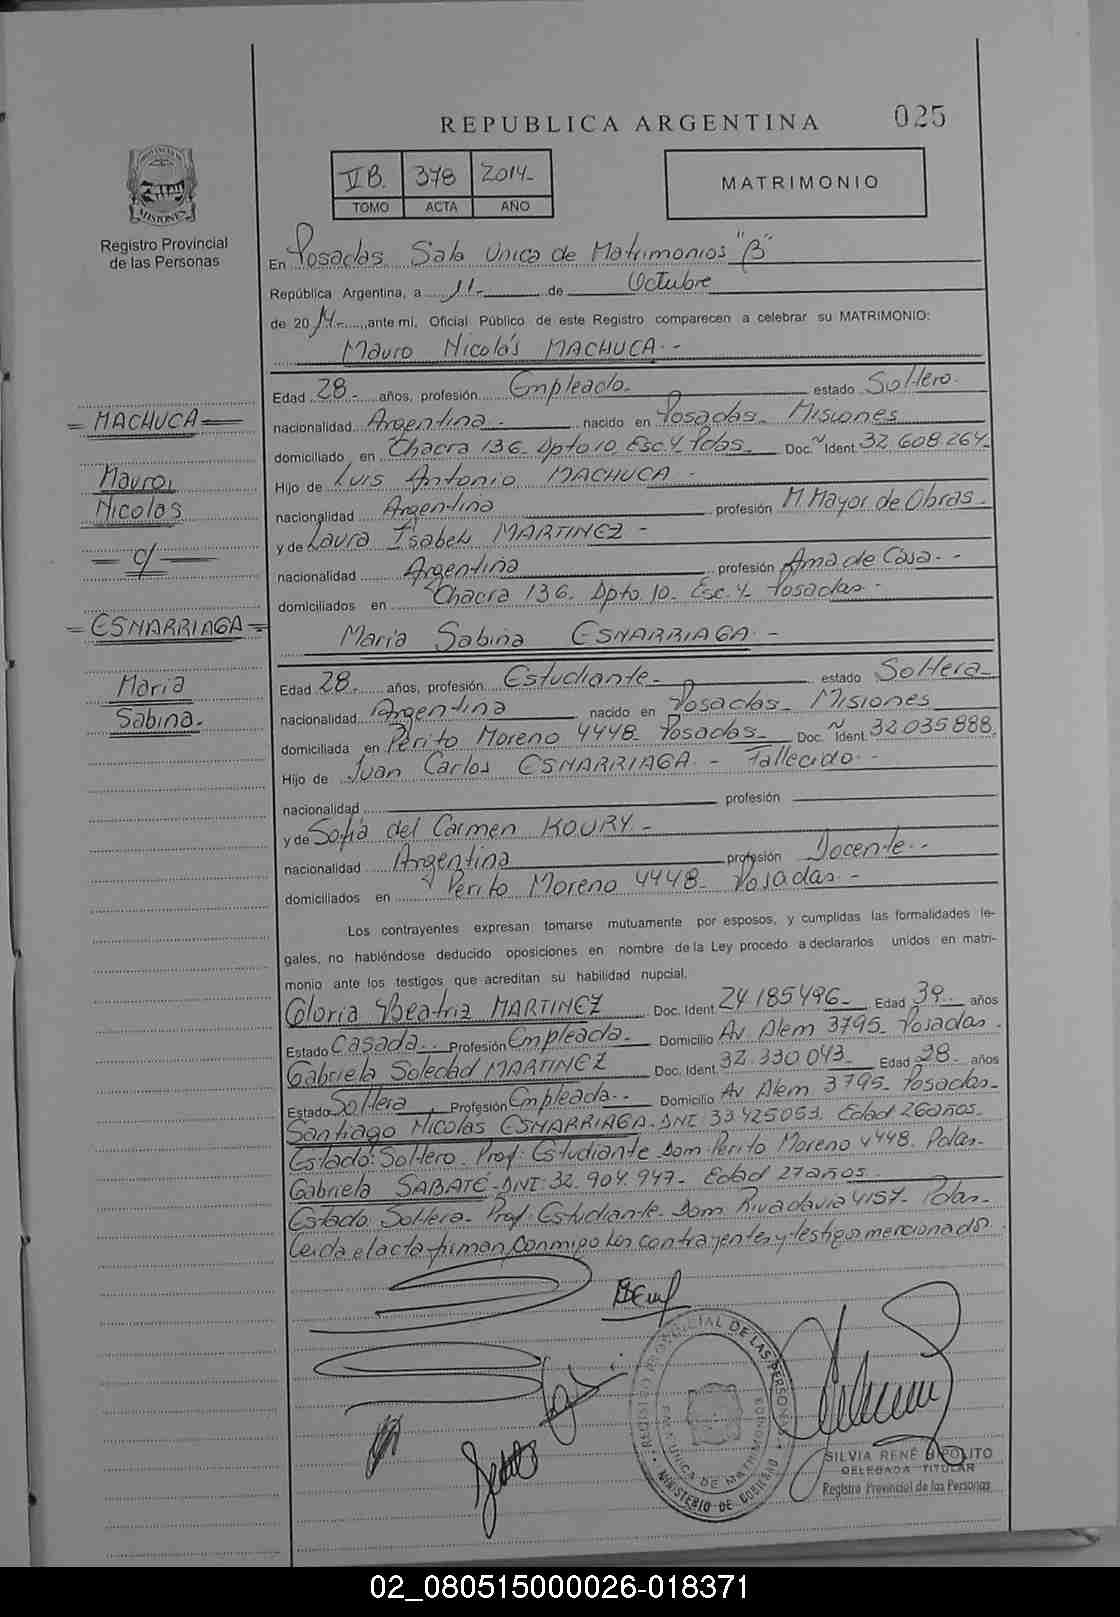 REPUBLICA ARGENTINA 025
V B. 378 2014-
TOMO ACTA AÑO
MATRIMONIO
PROVINCIA DE
MISIONES
Registro Provincial
de las Personas
En Posadas Sala Unica de Matrimonios "B"
República Argentina, a 11- de Octubre
de 2014-, ante mi, Oficial Público de este Registro comparecen a celebrar su MATRIMONIO:
Mauro Nicolás MACHUCA.-
Edad 28- años, profesión Empleado- estado Soltero-
nacionalidad Argentina- nacido en Posadas- Misiones
domiciliado en Chacra 136- Dpto 10 Esc. 4 Pdas- Doc. Ident. 32.608.264-
Hijo de Luis Antonio MACHUCA-
nacionalidad Argentina profesión M Mayor de Obras-
y de Laura Isabel MARTINEZ-
nacionalidad Argentina profesión Ama de Casa.-
domiciliados en Chacra 136. Dpto. 10. Esc. 4- Posadas-
MACHUCA
Mauro
Nicolas
c/
ESNARRIAGA
Maria
Sabina-
Maria Sabina ESNARRIAGA.-
Edad 28. años, profesión Estudiante- estado Soltera-
nacionalidad Argentina nacido en Posadas- Misiones
domiciliada en Perito Moreno 4448 Posadas- Doc. Ident. 32.035.888.
Hijo de Juan Carlos ESNARRIAGA - Fallecido.-
nacionalidad profesión
y de Sofia del Carmen KOURY-
nacionalidad Argentina profesión Docente.-
domiciliados en Perito Moreno 4448- Posadas.-
Los contrayentes expresan tomarse mutuamente por esposos, y cumplidas las formalidades le-
gales, no habléndose deducido oposiciones en nombre de la Ley procedo a declararlos unidos en matri-
monio ante los testigos que acreditan su habilidad nupcial.
Gloria Beatriz MARTINEZ Doc. Ident. 24.185.496- Edad 39- años
Estado Casada.. Profesión Empleada- Domicilio Av Alem 3795- Posadas.
Gabriela Soledad MARTINEZ Doc. Ident. 32.330.043- Edad 28- años
Estado Soltera, Profesión Empleada.. Domicilio Av Alem 3795- Posadas-
Santiago Nicolas ESNARRIAGA- DNI: 33.425.053. Edad 26 años.
Estado: Soltero. Prof: Estudiante Dom Perito Moreno 4448. Pdas-
Gabriela SABATÉ- DNI: 32.904.947- Edad 27 años.
Estado Soltera- Prof Estudiante- Dom Rivadavia 4157- Pdas-
Leida el acta firman conmigo los contrayentes y testigos mencionado
REGISTRO PROVINCIAL DE LAS PERSONAS
SALA UNICA DE MATRIMONIOS
MINISTERIO DE GOBIERNO
SILVIA RENÉ BIPOLITO
DELEGADA TITULAR
Registro Provincial de las Personas
02_080515000026-018371